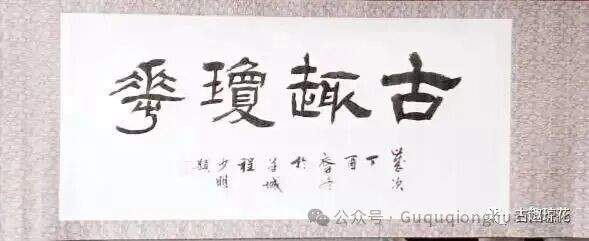 古趣瓊華
歲次
丁
酉
於
羊城
程
少明
題
公众号 · Guquqionghua
古趣琼花